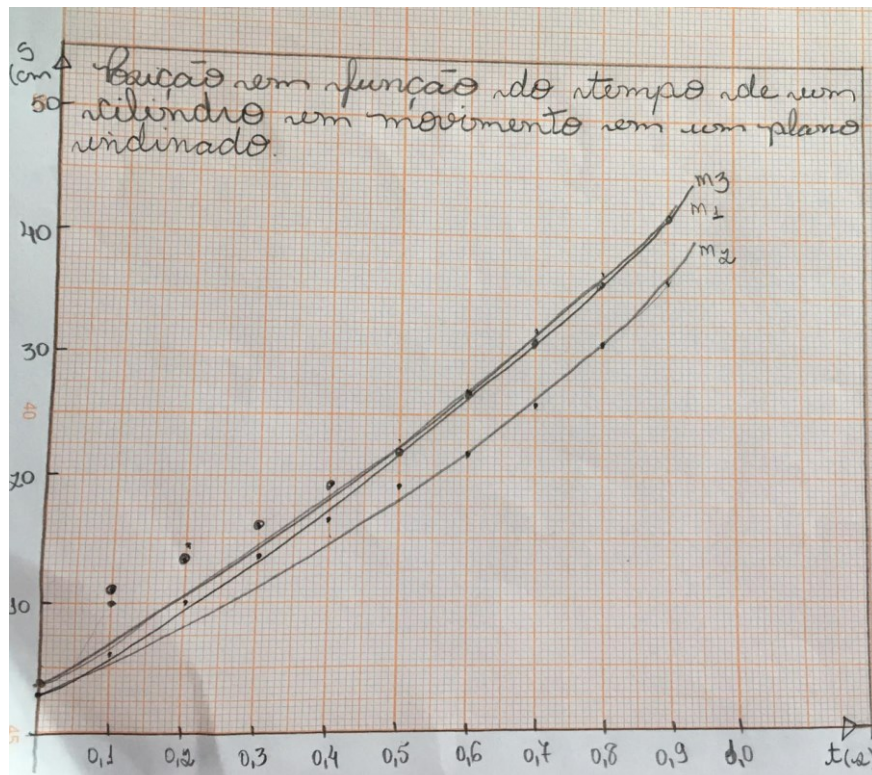 S
(cm)
Posição em função do tempo de um
cilindro em movimento em um plano
inclinado.
50
40
30
20
10
m3
m1
m2
40
45
0,1 0,2 0,3 0,4 0,5 0,6 0,7 0,8 0,9 1,0 t(s)